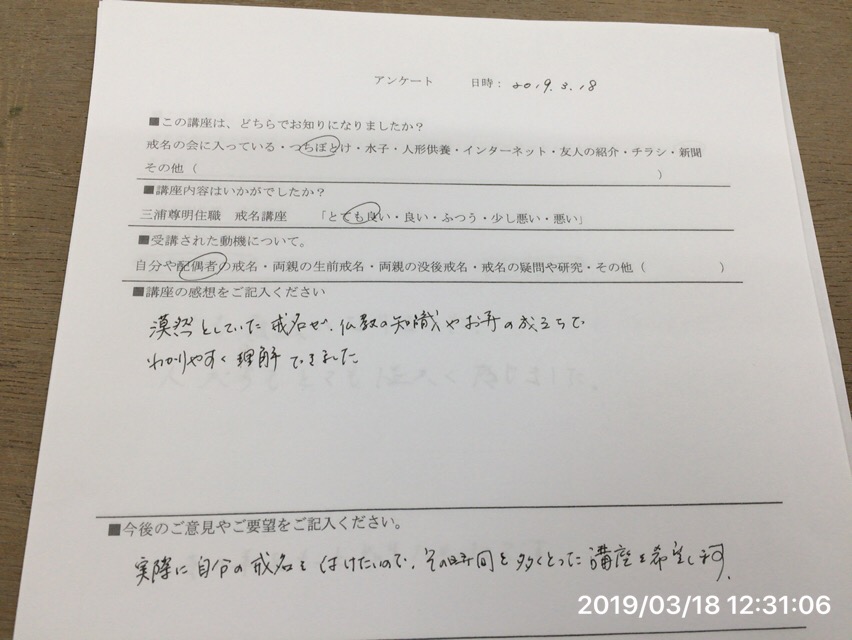 アンケート 日時：2019.3.18
■この講座は、どちらでお知りになりましたか？
戒名の会に入っている・つちぼとけ・水子・人形供養・インターネット・友人の紹介・チラシ・新聞
その他（ ）
■講座内容はいかがでしたか？
三浦尊明住職 戒名講座 「とても良い・良い・ふつう・少し悪い・悪い」
■受講された動機について。
自分や配偶者の戒名・両親の生前戒名・両親の没後戒名・戒名の疑問や研究・その他（ ）
■講座の感想をご記入ください
漠然としていた戒名が、仏教の知識やお寺の成立ちで
わかりやすく理解できました
■今後のご意見やご要望をご記入ください。
実際に自分の戒名をつけたいので、その時間を多くとった講座を希望します。
2019/03/18 12:31:06